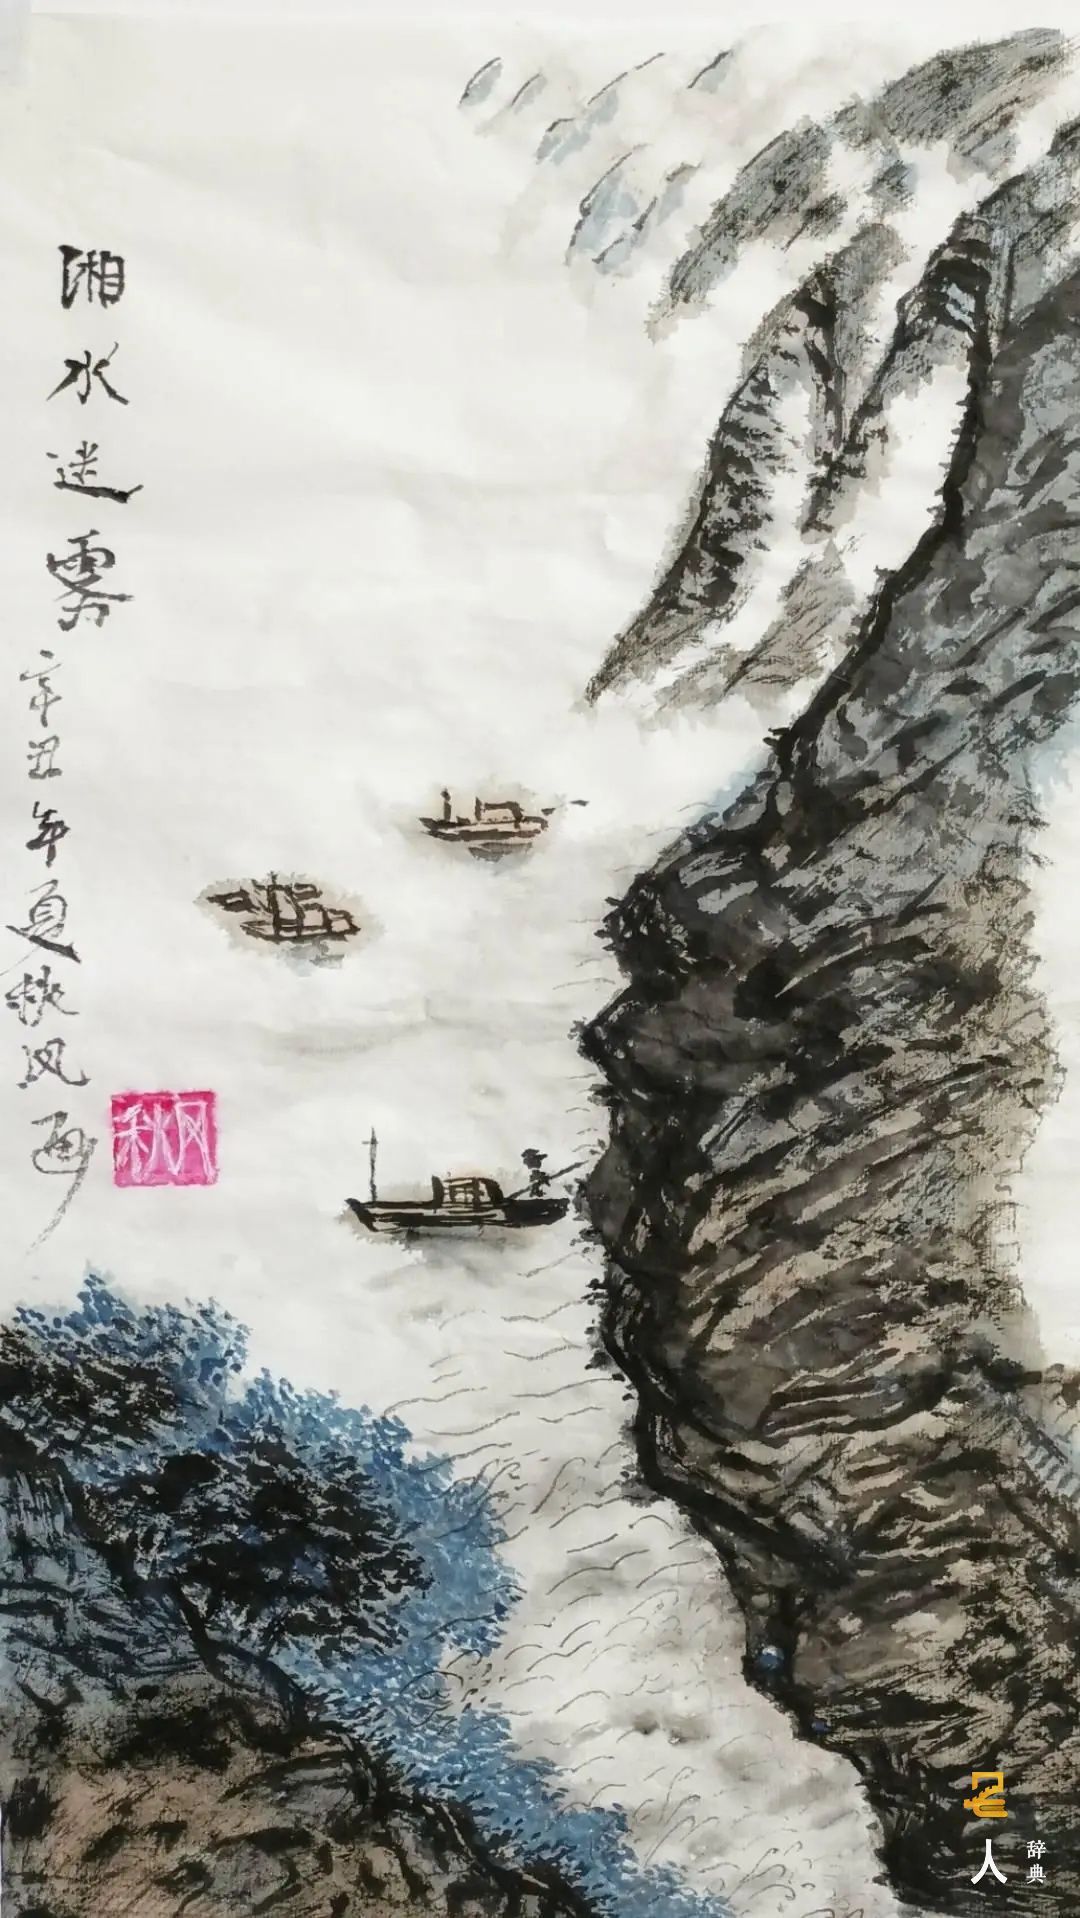 湘水迷雾
辛丑年夏秋风画
秋风
名人
辞典